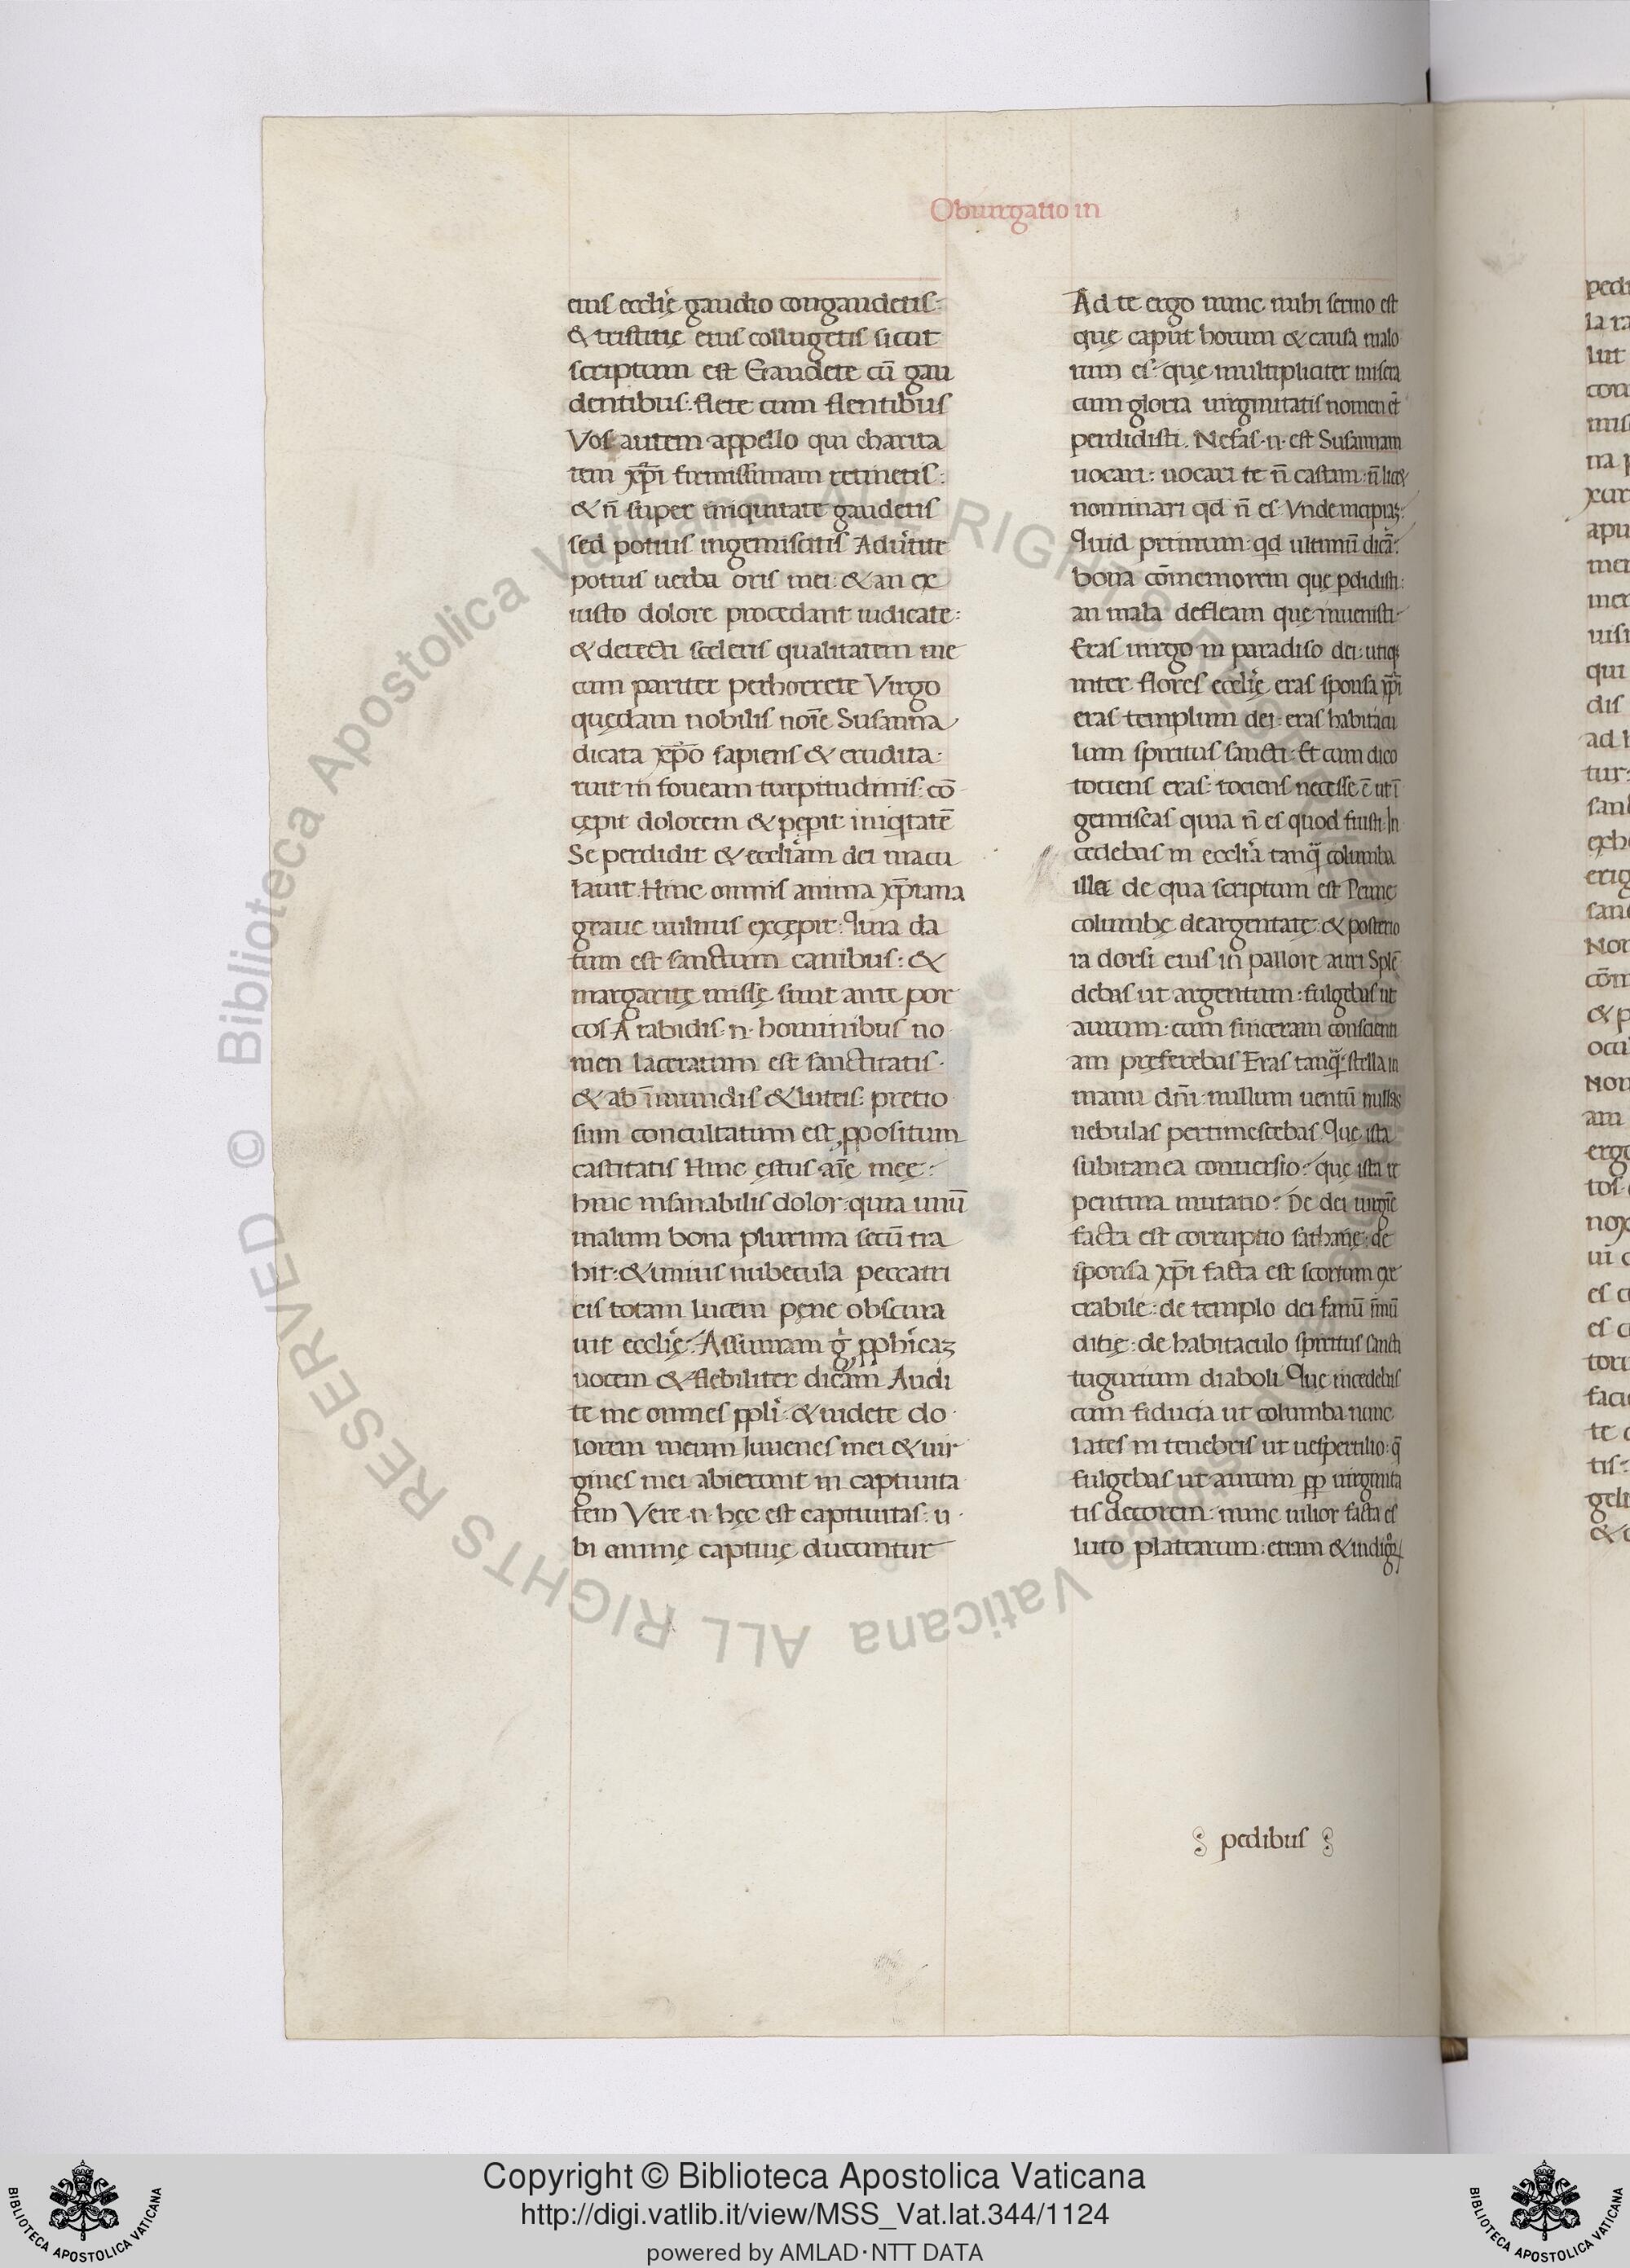 Obiurgatio in
eius eccl'ię gaudio congaudetis:
& tristitię eius collugetis sicut
scriptum est Gaudete cū gau
dentibus: flete cum flentibus
Vos autem appello qui charita
tem xp̄i firmissimam retinetis:
& n̄ super iniquitate gaudetis
sed potius ingemiscitis Adu'tite
potius uerba oris mei: & an ex
iusto dolore procedant iudicate:
& detecti sceleris qualitatem me
cum pariter perhorrete Virgo
quędam nobilis noīe Susanna
dicata xp̄o sapiens & erudita:
ruit in foueam turpitudinis: cō
cępit dolorem & pepit iniqtatē
Se perdidit & eccl'iam dei macu
lauit. Hinc omnis anima xp̄iana
graue uulnus excępit: Quia da
tum est sanctum canibus: &
margaritę missę sunt ante por
cos A rabidis .n. hominibus no
men laceratum est sanctitatis.
& ab īmundis & luteis: pretio
sum concultatum est ꝓpositum
castitatis Hinc ęstus aīe meę:
hinc insanabilis dolor: quia unū
malum bona plurima secū tra
hit: & unius nubecula peccatri
cis totam lucem pęne obscura
uit eccl'ię: Assumam g̊ ꝓph'icaz
uocem & flebiliter dicam Audi
te me omnes ppl'i: & uidete do
lorem meum Iuuenes mei & uir
gines mei abierunt in captiuita
tem Vere .n. hęc est captiuitas: u
bi animę captiuę ducuntur
Ad te ergo nunc mihi sermo est
quę caput horum & causa malo
rum es: quę multipliciter misera
cum gloria uirginitatis nomen &
perdidisti. Nefas .n. est Susannam
uocari: uocari te n̄ castam: n̄ lic&
nominari qd n̄ es Vnde incipiaz:
Quid primum: qd ultimū dicā:
bona cōmemorem quę pdidisti:
an mala defleam quę inuenisti
Eras uirgo in paradiso dei: utiq;
inter flores eccl'ię eras sponsa xp̄i
eras templum dei: eras habitacu
lum spiritus sancti: Et cum dico
tociens eras: tociens necesse ē ut ī
gemiscas quia n̄ es quod fuisti: In
cedebas in eccl'ia tanq̄ columba
illa de qua scriptum est Penne
columbę deargentatę: & posterio
ra dorsi eius in pallore auri Splē
debas ut argentum: fulgebas ut
aurum: cum sinceram conscienti
am pręferebas Eras tanq̄ stella in
manu dn̄i: nullum uentū nullas
nebulas pertimescebas. Quę ista
subitanea conuersio: quę ista re
pentina mutatio? De dei uirgīe
facta est corruptio sathanę: de
sponsa xp̄i facta est scortum exe
crabile: de templo dei fanū īmū
ditię: de habitaculo spiritus sancti
tugurium diaboli Quę incedebas
cum fiducia ut columba nunc
lates in tenebris ut uespertilio: q̄
fulgebas ut aurum pp uirginita
tis decorem: nunc uilior facta es
luto platearum: etiam & indigoꝝ
pedibus